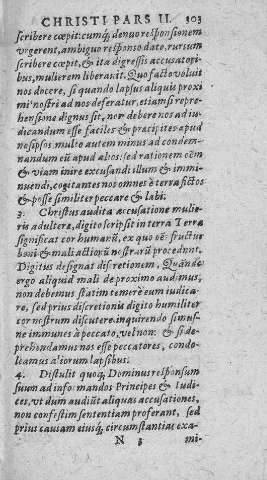 CHRISTI PARS II. 303
scribere cœpit: cumq; denuo responsionem
vrgerent, ambiguo responso dato, rursum
scribere cœpit, & ita digressis accusatopi-
bus, mulierem liberauit. Quo facto voluit
nos docere, si quando lapsus aliquis proxi
mi nostri ad nos deferatur, etiamsi repre-
hensione dignus sit, non debere nos ad iu-
dicandum esse faciles & præcipites apud
nosipsos, multo autem minus ad condem-
nandum eū apud alios: sed rationem oēm
& viam inire excusandi illum & immi-
nuendi, cogitantes nos omnes è terra fictos
& posse similiter peccare & labi.
3. Christus audita accusatione mulie-
ris adulteræ, digito scripsit in terra. Terra
significat cor humanū, ex quo oēs fructus
boni & mali actionū nostrarū procedunt.
Digitus designat discretionem. Quando
ergo aliquid mali de proximo audimus,
non debemus statim temere eum iudica-
re, sed prius discretionis digito humiliter
cor nostrum discutere, inquirendo simus-
ne immunes à peccato, vel non: & si de-
prehendamus nos esse peccatores, condo-
leamus aliorum lapsibus.
4. Distulit quoq; Dominus responsum
suum ad informandos Principes & Iudi-
ces, vt dum audiūt aliquas accusationes,
non confestim sententiam proferant, sed
prius causam eiusq; circumstantias exa-
N 3 mi-